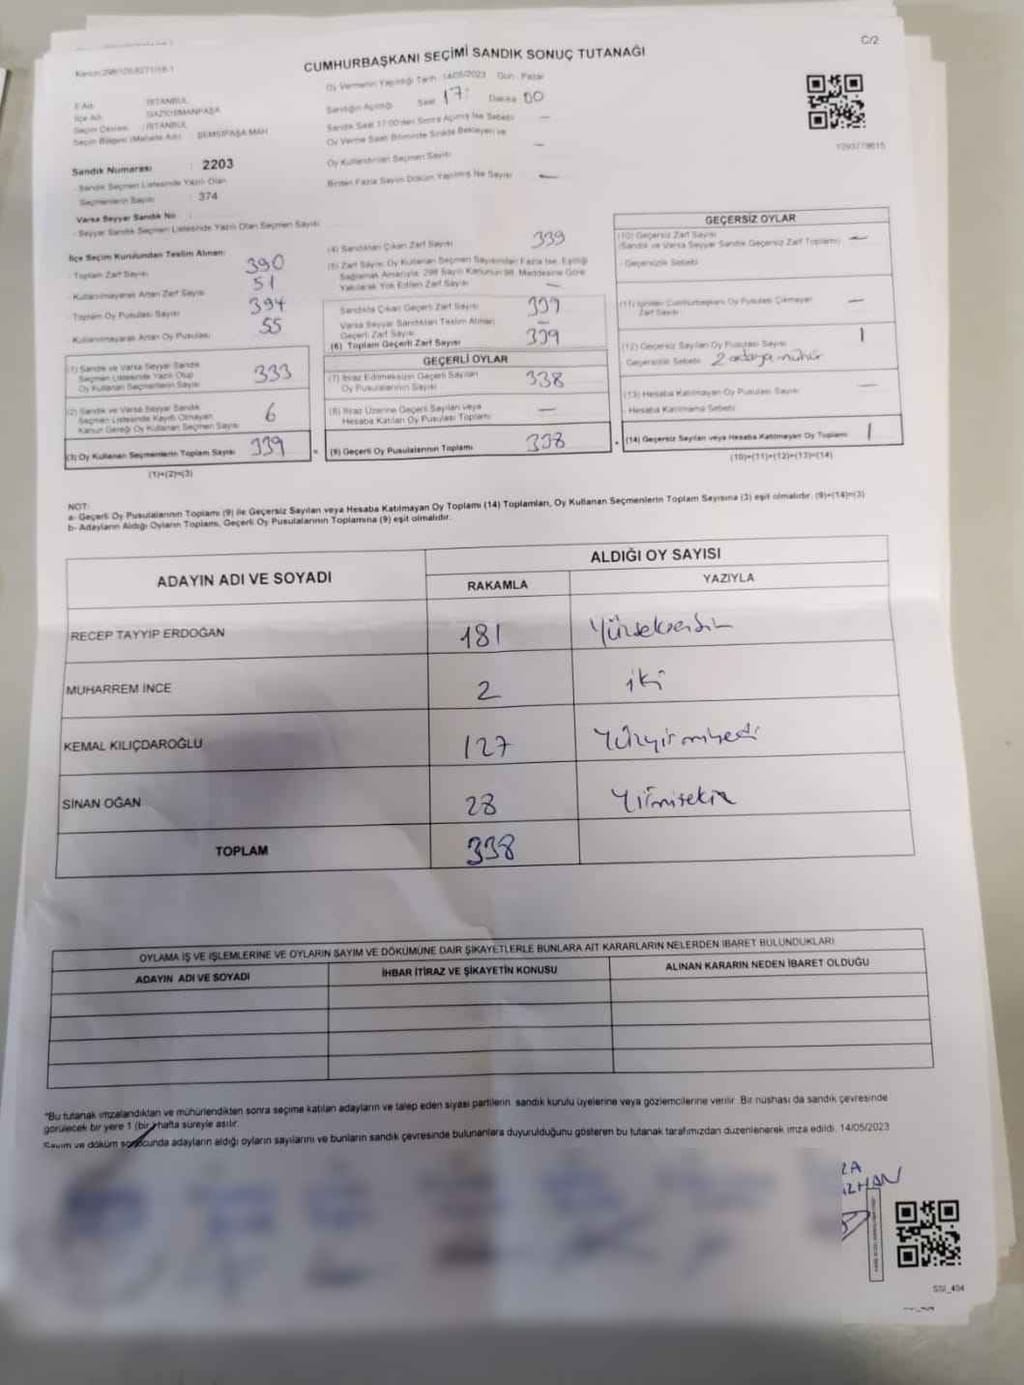 C/2
CUMHURBAŞKANI SEÇİMİ SANDIK SONUÇ TUTANAĞI
İl Adı : İSTANBUL
İlçe Adı : GAZİOSMANPAŞA
Seçim Çevresi : İSTANBUL
Seçim Bölgesi (Mahalle Adı) : ŞEMSİPAŞA MAH
Sandık Numarası : 2203
Sandık Seçmen Listesinde Yazılı Olan
Seçmenlerin Sayısı : 374
Varsa Seyyar Sandık No
Seyyar Sandık Seçmen Listesinde Yazılı Olan Seçmen Sayısı
Oy Vermenin Yapıldığı Tarih : 14/05/2023 Gün : Pazar
Sandığın Açıldığı Saat 17: Dakika 00
Sandık Saat 17:00'den Sonra Açılmış İse Sebebi —
Oy Verme Saati Bitiminde Sırada Bekleyen ve
Oy Kullandırılan Seçmen Sayısı —
Birden Fazla Sayım Döküm Yapılmış İse Sayısı —
İlçe Seçim Kurulundan Teslim Alınan:
Toplam Zarf Sayısı 390
Kullanılmayarak Artan Zarf Sayısı 51
Toplam Oy Pusulası Sayısı 394
Kullanılmayarak Artan Oy Pusulası 55
(1) Sandık ve Varsa Seyyar Sandık
Seçmen Listesinde Yazılı Olup
Oy Kullanan Seçmenlerin Sayısı 333
(2) Sandık ve Varsa Seyyar Sandık
Seçmen Listesinde Kayıtlı Olmayan
Kanun Gereği Oy Kullanan Seçmen Sayısı 6
(3) Oy Kullanan Seçmenlerin Toplam Sayısı 339
(1)+(2)=(3)
(4) Sandıktan Çıkan Zarf Sayısı 339
(5) Zarf Sayısı, Oy Kullanan Seçmen Sayısından Fazla İse, Eşitliği
Sağlamak Amacıyla, 298 Sayılı Kanunun 98. Maddesine Göre
Yakılarak Yok Edilen Zarf Sayısı —
Sandıkta Çıkan Geçerli Zarf Sayısı 339
Varsa Seyyar Sandıktan Teslim Alınan
Geçerli Zarf Sayısı —
(6) Toplam Geçerli Zarf Sayısı 339
GEÇERLİ OYLAR
(7) İtiraz Edilmeksizin Geçerli Sayılan
Oy Pusulasının Sayısı 338
(8) İtiraz Üzerine Geçerli Sayılan veya
Hesaba Katılan Oy Pusulası Toplamı —
(9) Geçerli Oy Pusulalarının Toplamı 338
GEÇERSİZ OYLAR
(10) Geçersiz Zarf Sayısı
(Sandık ve Varsa Seyyar Sandık Geçersiz Zarf Toplamı) —
Geçersizlik Sebebi
(11) İçinden Cumhurbaşkanı Oy Pusulası Çıkmayan
Zarf Sayısı —
(12) Geçersiz Sayılan Oy Pusulası Sayısı 1
Geçersizlik Sebebi 2 adaya mühür
(13) Hesaba Katılmayan Oy Pusulası Sayısı —
Hesaba Katılmama Sebebi
(14) Geçersiz Sayılan veya Hesaba Katılmayan Oy Toplamı 1
(10)+(11)+(12)+(13)=(14)
NOT:
a- Geçerli Oy Pusulalarının Toplamı (9) ile Geçersiz Sayılan veya Hesaba Katılmayan Oy Toplamı (14) Toplamları, Oy Kullanan Seçmenlerin Toplam Sayısına (3) eşit olmalıdır. (9)+(14)=(3)
b- Adayların Aldığı Oyların Toplamı, Geçerli Oy Pusulalarının Toplamına (9) eşit olmalıdır.
ADAYIN ADI VE SOYADI
ALDIĞI OY SAYISI
RAKAMLA YAZIYLA
RECEP TAYYİP ERDOĞAN 181 Yüzseksenbir
MUHARREM İNCE 2 iki
KEMAL KILIÇDAROĞLU 127 Yüzyirmiyedi
SİNAN OĞAN 28 Yirmisekiz
TOPLAM 338
OYLAMA İŞ VE İŞLEMLERİNE VE OYLARIN SAYIM VE DÖKÜMÜNE DAİR ŞİKAYETLERLE BUNLARA AİT KARARLARIN NELERDEN İBARET BULUNDUKLARI
ADAYIN ADI VE SOYADI İHBAR İTİRAZ VE ŞİKAYETİN KONUSU ALINAN KARARIN NEDEN İBARET OLDUĞU
*Bu tutanak imzalandıktan ve mühürlendikten sonra seçime katılan adayların ve talep eden siyasi partilerin sandık kurulu üyelerine veya gözlemcilerine verilir. Bir nüshası da sandık çevresinde
görülecek bir yere 1 (bir) hafta süreyle asılır.
Sayım ve döküm sonucunda adayların aldığı oyların sayılarını ve bunların sandık çevresinde bulunanlara duyurulduğunu gösteren bu tutanak tarafımızdan düzenlenerek imza edildi. 14/05/2023